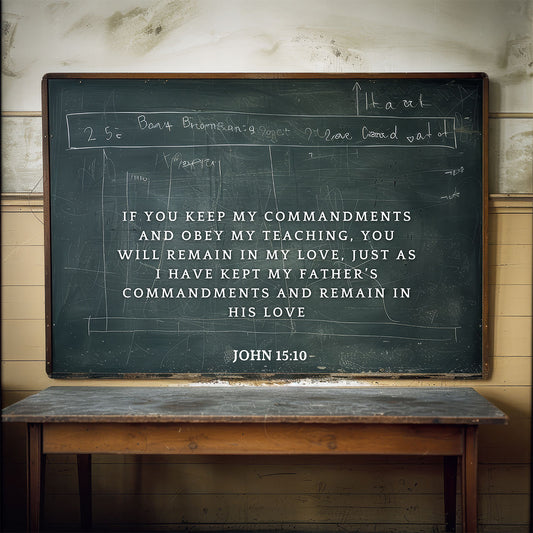 IF YOU KEEP MY COMMANDMENTS
AND OBEY MY TEACHING, YOU
WILL REMAIN IN MY LOVE, JUST AS
I HAVE KEPT MY FATHER'S
COMMANDMENTS AND REMAIN IN
HIS LOVE
JOHN 15:10